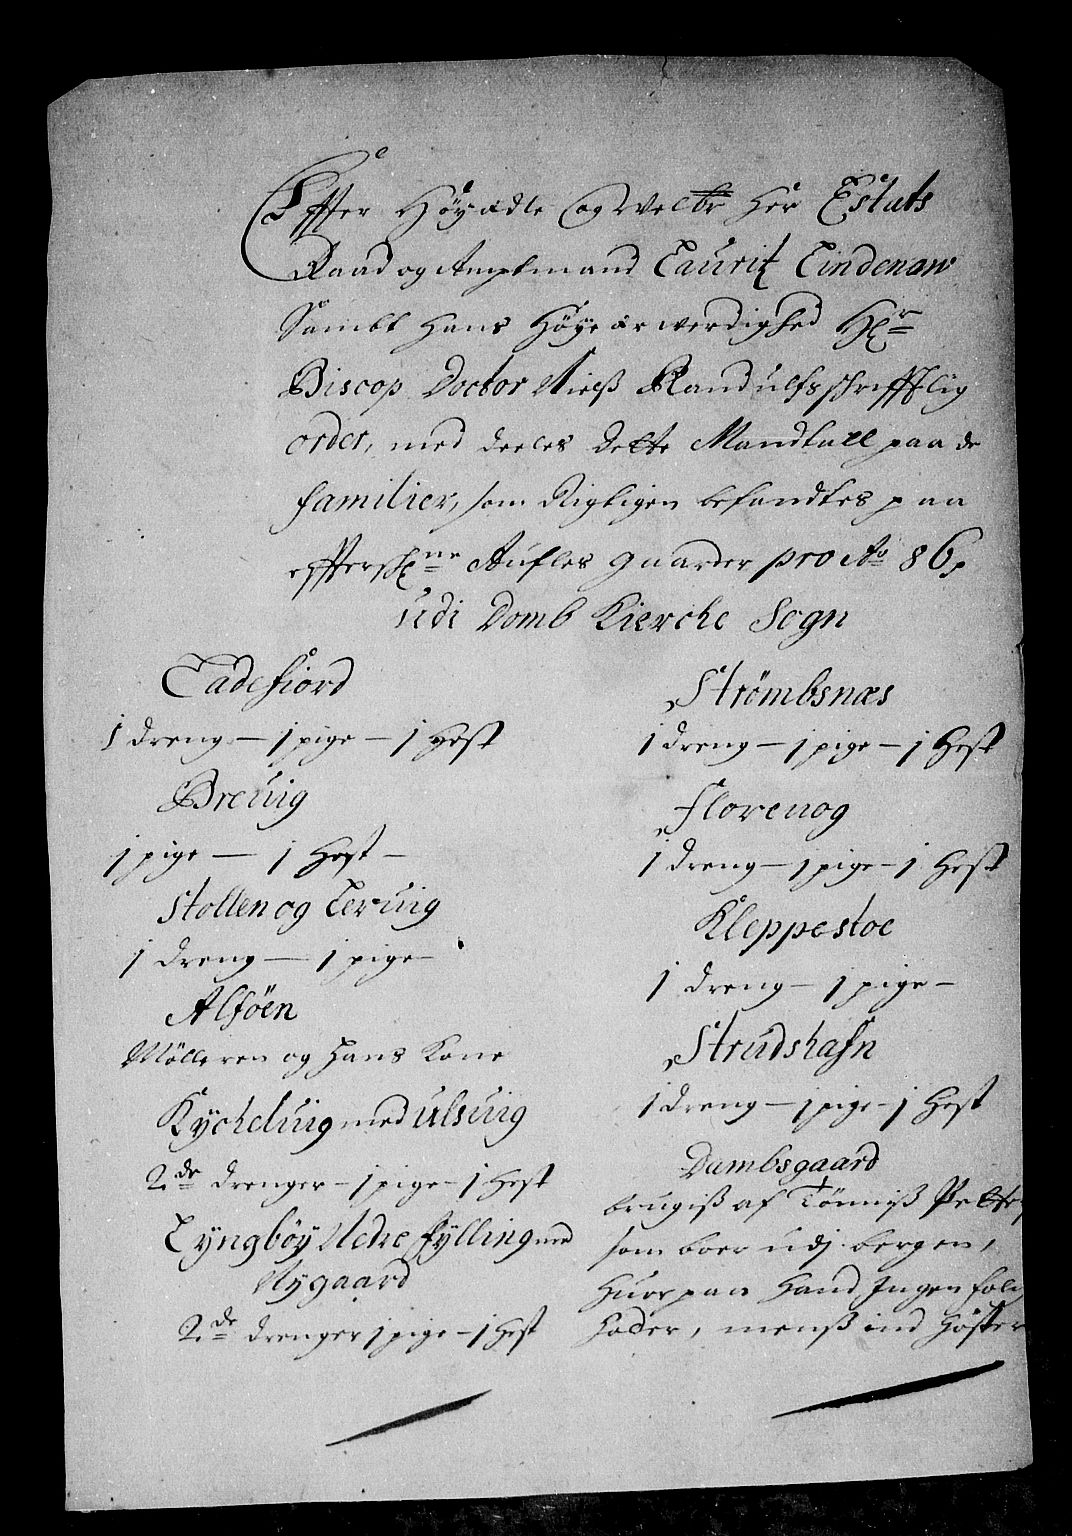 Effter Høyædle og Welbr her Estats
Raad og Amptmand Lauritz Lindenow
Sambt hans Høyeærwerdighed Hr
Biscop Doctor Nielß Randulfs schrifftlig
order, med deeles dette Mandtall paa de
familier, som Rigtigen befandtes paa
effterschne Aufles gaarder pro Ao 86,
udi Domb Kierche Sogn
Ladefiord
1 dreng — 1 pige — 1 Hest
Breuig
1 pige — 1 Hest —
Stollen og Leruig
1 dreng — 1 pige —
Alföen
Mölleren og hans Kone
Kycheluig med Ulsuig
2de drenger — 1 pige — 1 Hest
Lyngböy Nedre fylling med
Nygaard
2de drenger 1 pige — 1 Hest
Strømbsnæs
1 dreng — 1 pige — 1 Hest
Florenog
1 dreng — 1 pige — 1 Hest
Kleppestoe
1 dreng — 1 pige —
Strudshafn
1 dreng — 1 pige — 1 Hest
Dambsgaard
brugiß af Tönniß
som boer udj bergen,
huor paa hand Ingen folch
hafder, menß ind Høster